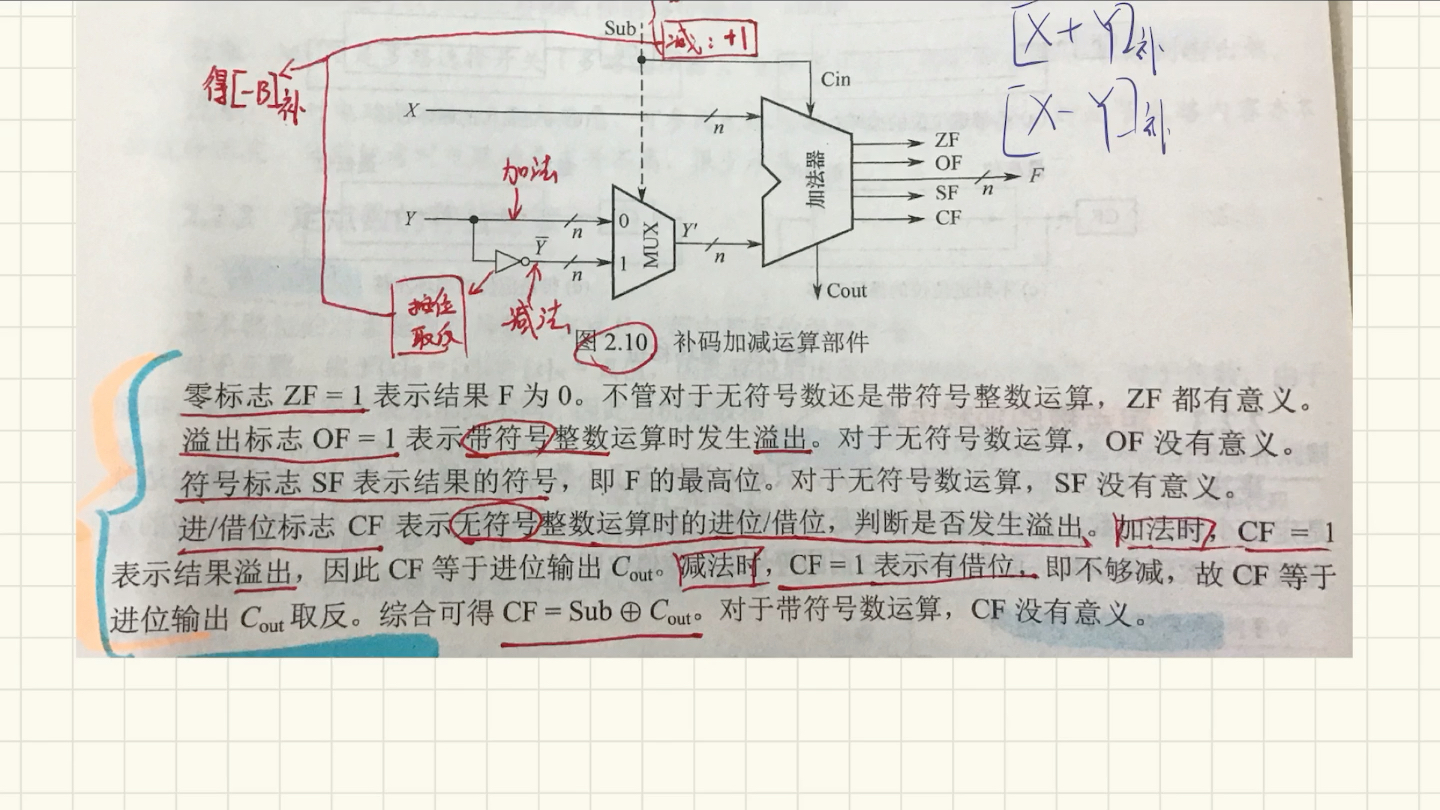 Sub
减：+1
[X+Y]补
得[-B]补
Cin
[X-Y]补
X
n
ZF
OF
加法
加法器
n
F
SF
Y
n
0
MUX
Y′
CF
Y̅
n
1
n
按位
取反
减法
Cout
图 2.10 补码加减运算部件
零标志 ZF = 1 表示结果 F 为 0。不管对于无符号数还是带符号整数运算，ZF 都有意义。
溢出标志 OF = 1 表示带符号整数运算时发生溢出。对于无符号数运算，OF 没有意义。
符号标志 SF 表示结果的符号，即 F 的最高位。对于无符号数运算，SF 没有意义。
进/借位标志 CF 表示无符号整数运算时的进位/借位，判断是否发生溢出。加法时，CF = 1
表示结果溢出，因此 CF 等于进位输出 Cout。减法时，CF = 1 表示有借位，即不够减，故 CF 等于
进位输出 Cout 取反。综合可得 CF = Sub ⊕ Cout。对于带符号数运算，CF 没有意义。